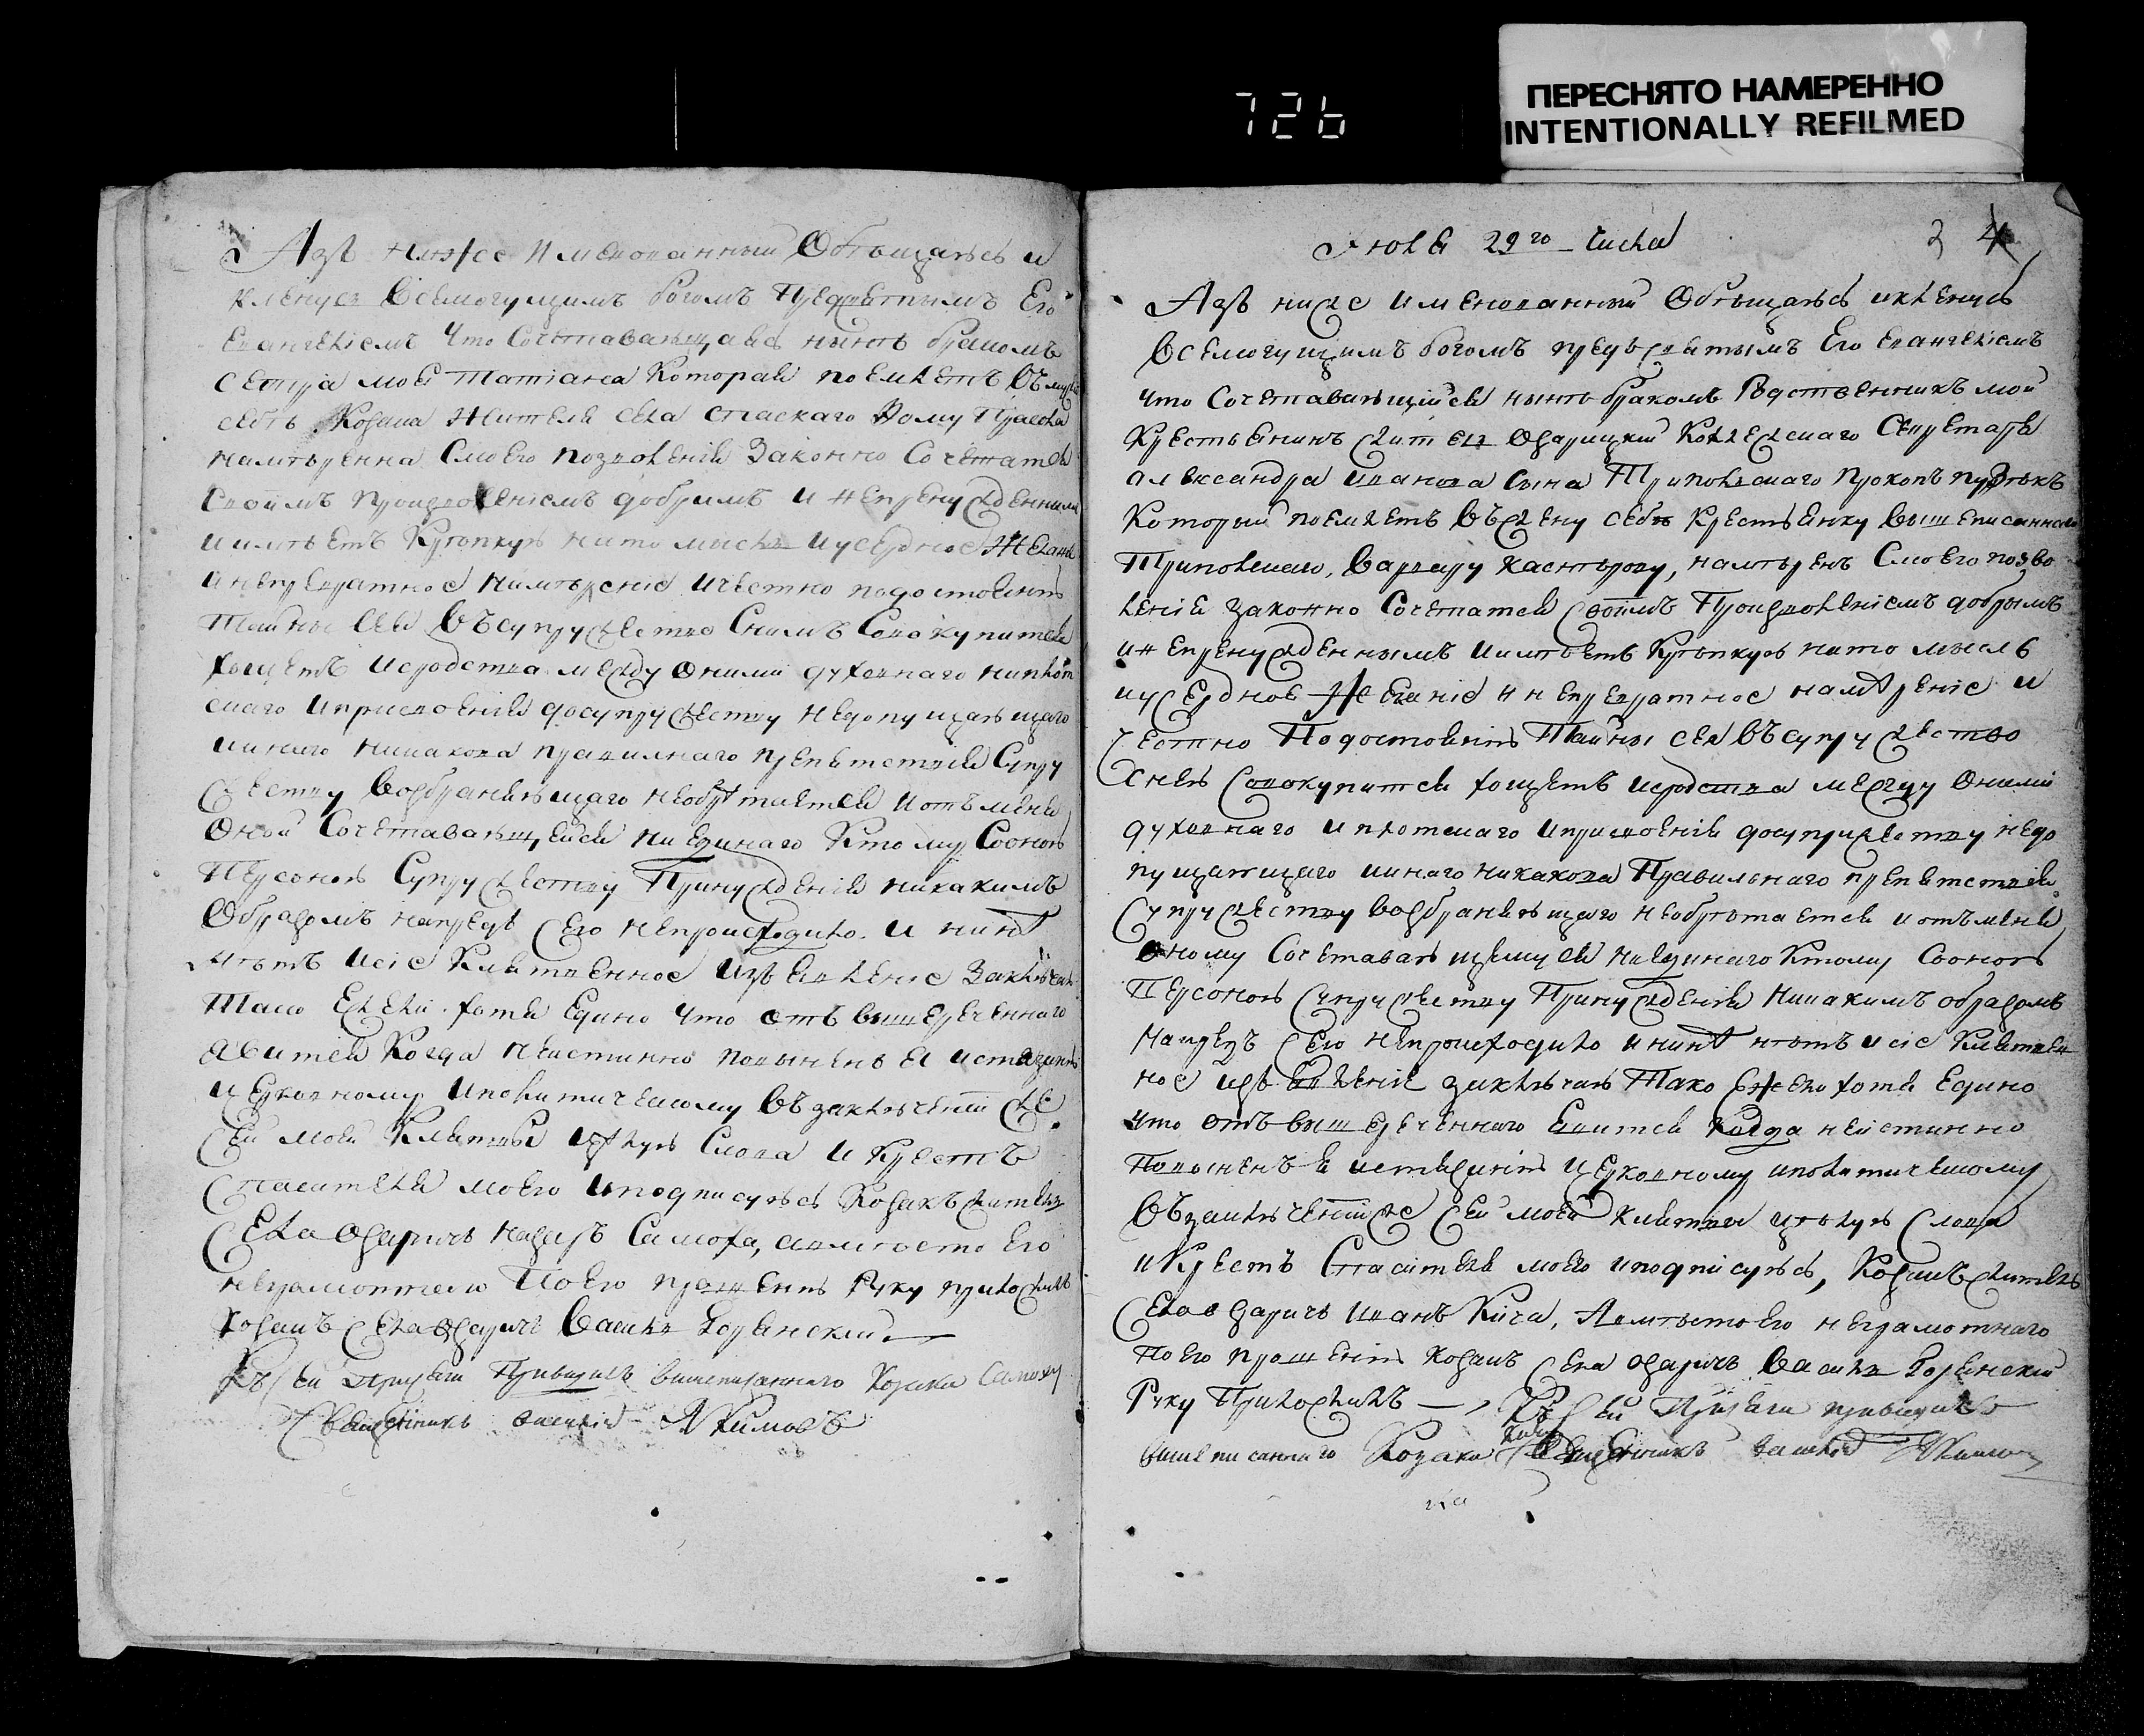 726
ПЕРЕСНЯТО НАМЕРЕННО
INTENTIONALLY REFILMED
Азъ нижее Именованный Обѣщаюсь и
кленуся Всемогущимъ богомъ Предсвятымъ Его
Евангелиемъ Что Сочетаваящаяся нынѣ бракомъ
Сестра моя Татіана Которая поемлетъ въ мужа
себѣ Козака Жителя села спаскаго Фому Прасола
намѣренна Смоего позволенія Законно Сочетатся
своимъ произволеніемъ добримъ и непренужденнимъ
иимѣетъ Крѣпкую нато мысль иусердное Желание
инепревратное Намѣреніе ичестно подостоянію
Тайны Сея Въсупружество Снимъ Совокупитися
хощетъ исродства между оними духовнаго ниплот
скаго иприсвоенія досупружеству недопущающаго
иинаго никакова правилнаго препятствія Супру
жеству возбраняющаго необрѣтается иотъмене
Оной Сочетаваящейся ниединаго Ктому Сооною
Персоною Супружеству Принужденія никакимъ
Образомъ напредъ сего непроисходило и нинѣ
нѣтъ исіе Клятвенное Изъявление Заключаю
Тако Ежели хотя Едино что отъ вышереченнаго
явится Когда неистинно повиненъ я истязанію
церковному иполитическому въ заключеніи же
сей моей Клятвы цѣлую Слова и Крестъ
Спасителя моего иподписуюсь Козакъ житель
Села Озаричъ назаръ Самоха, авмѣсто его
неграмотнаго Поего прошению Руку приложилъ
Козакъ села Озаричъ Василь
Къ сей присяги Приводилъ вишеписанного Козака Самоху
Священникъ Василій Якимовъ
Июля 29го Числа
3 4
Азъ ниже Именованный Обѣщаюсь икленусь
Всемогущимъ богомъ предъсвятымъ Его Евангеліемъ
что Сочетавающійся нынѣ бракомъ Родственникъ мой
Крестьянинъ житель озарицкій Коллежскаго Секретаря
александра иванова сына Триполскаго Прокопъ
Который поемлетъ въжену себѣ Крестьянку вышеписанного
Триполскаго, варвару, намѣренъ Смоего позво
ленія законно Сочетатся Своимъ Произволеніемъ добрымъ
инепренужденнымъ иимѣетъ Крѣпкую нато мысль
иусердное Желаніе инепревратное намѣреніе и
честно Подостоянію Тайны сея Въсупружество
Снею Совокупитися хощетъ исродства между Оними
духовнаго иплотскаго иприсвоенія досупружеству недо
пущающаго иинаго никакова Правильнаго препятствія
Супружеству возбраняющаго необрѣтается иотъмене
оному Сочетавающемуся ниединаго Ктому Сооною
Персоною Супружеству Принужденія Никакимъ образомъ
Напредъ сего непроисходило ининѣ нѣтъ исіе Клятвен
ное изъявленіе заключаю Тако ежели хотя Едино
что отъ вишереченнаго Явится Когда неистинно
Повыненъ я истязанію церковному иполитическому
Въ заключеніи же Сей моей клятвы цѣлую Слова
иКрестъ Спасителя моего иподписуюсь, Козакъ житель
села озаричъ Иванъ Кича, Авмѣсто его неграмотнаго
Поего прошению козакъ села озаричъ Василь
Руку Приложилъ — Къ сей Присяги приводилъ
вишеписанного Козака Кичу Священникъ Василій Якимов